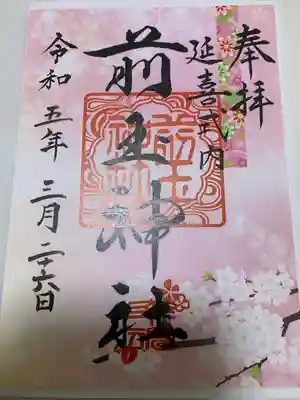 奉拝
延喜式内
前玉神社
令和五年三月二十六日